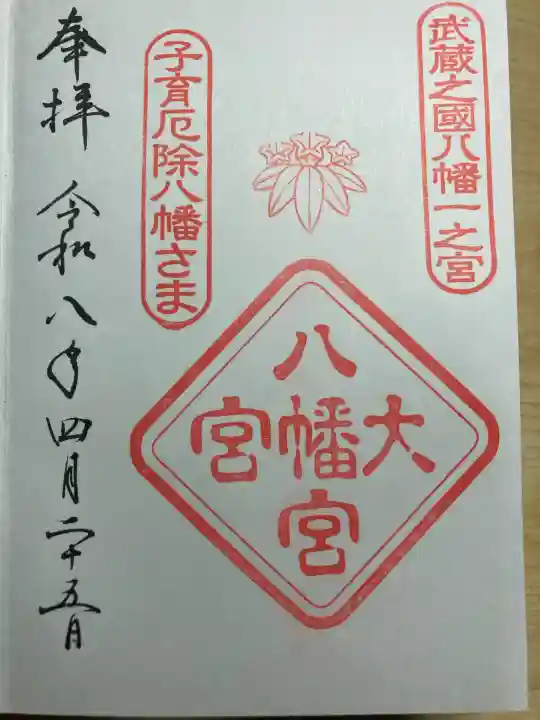 武蔵之國八幡一之宮
大宮八幡宮
子育厄除八幡さま
奉拝 令和八年四月二十五日